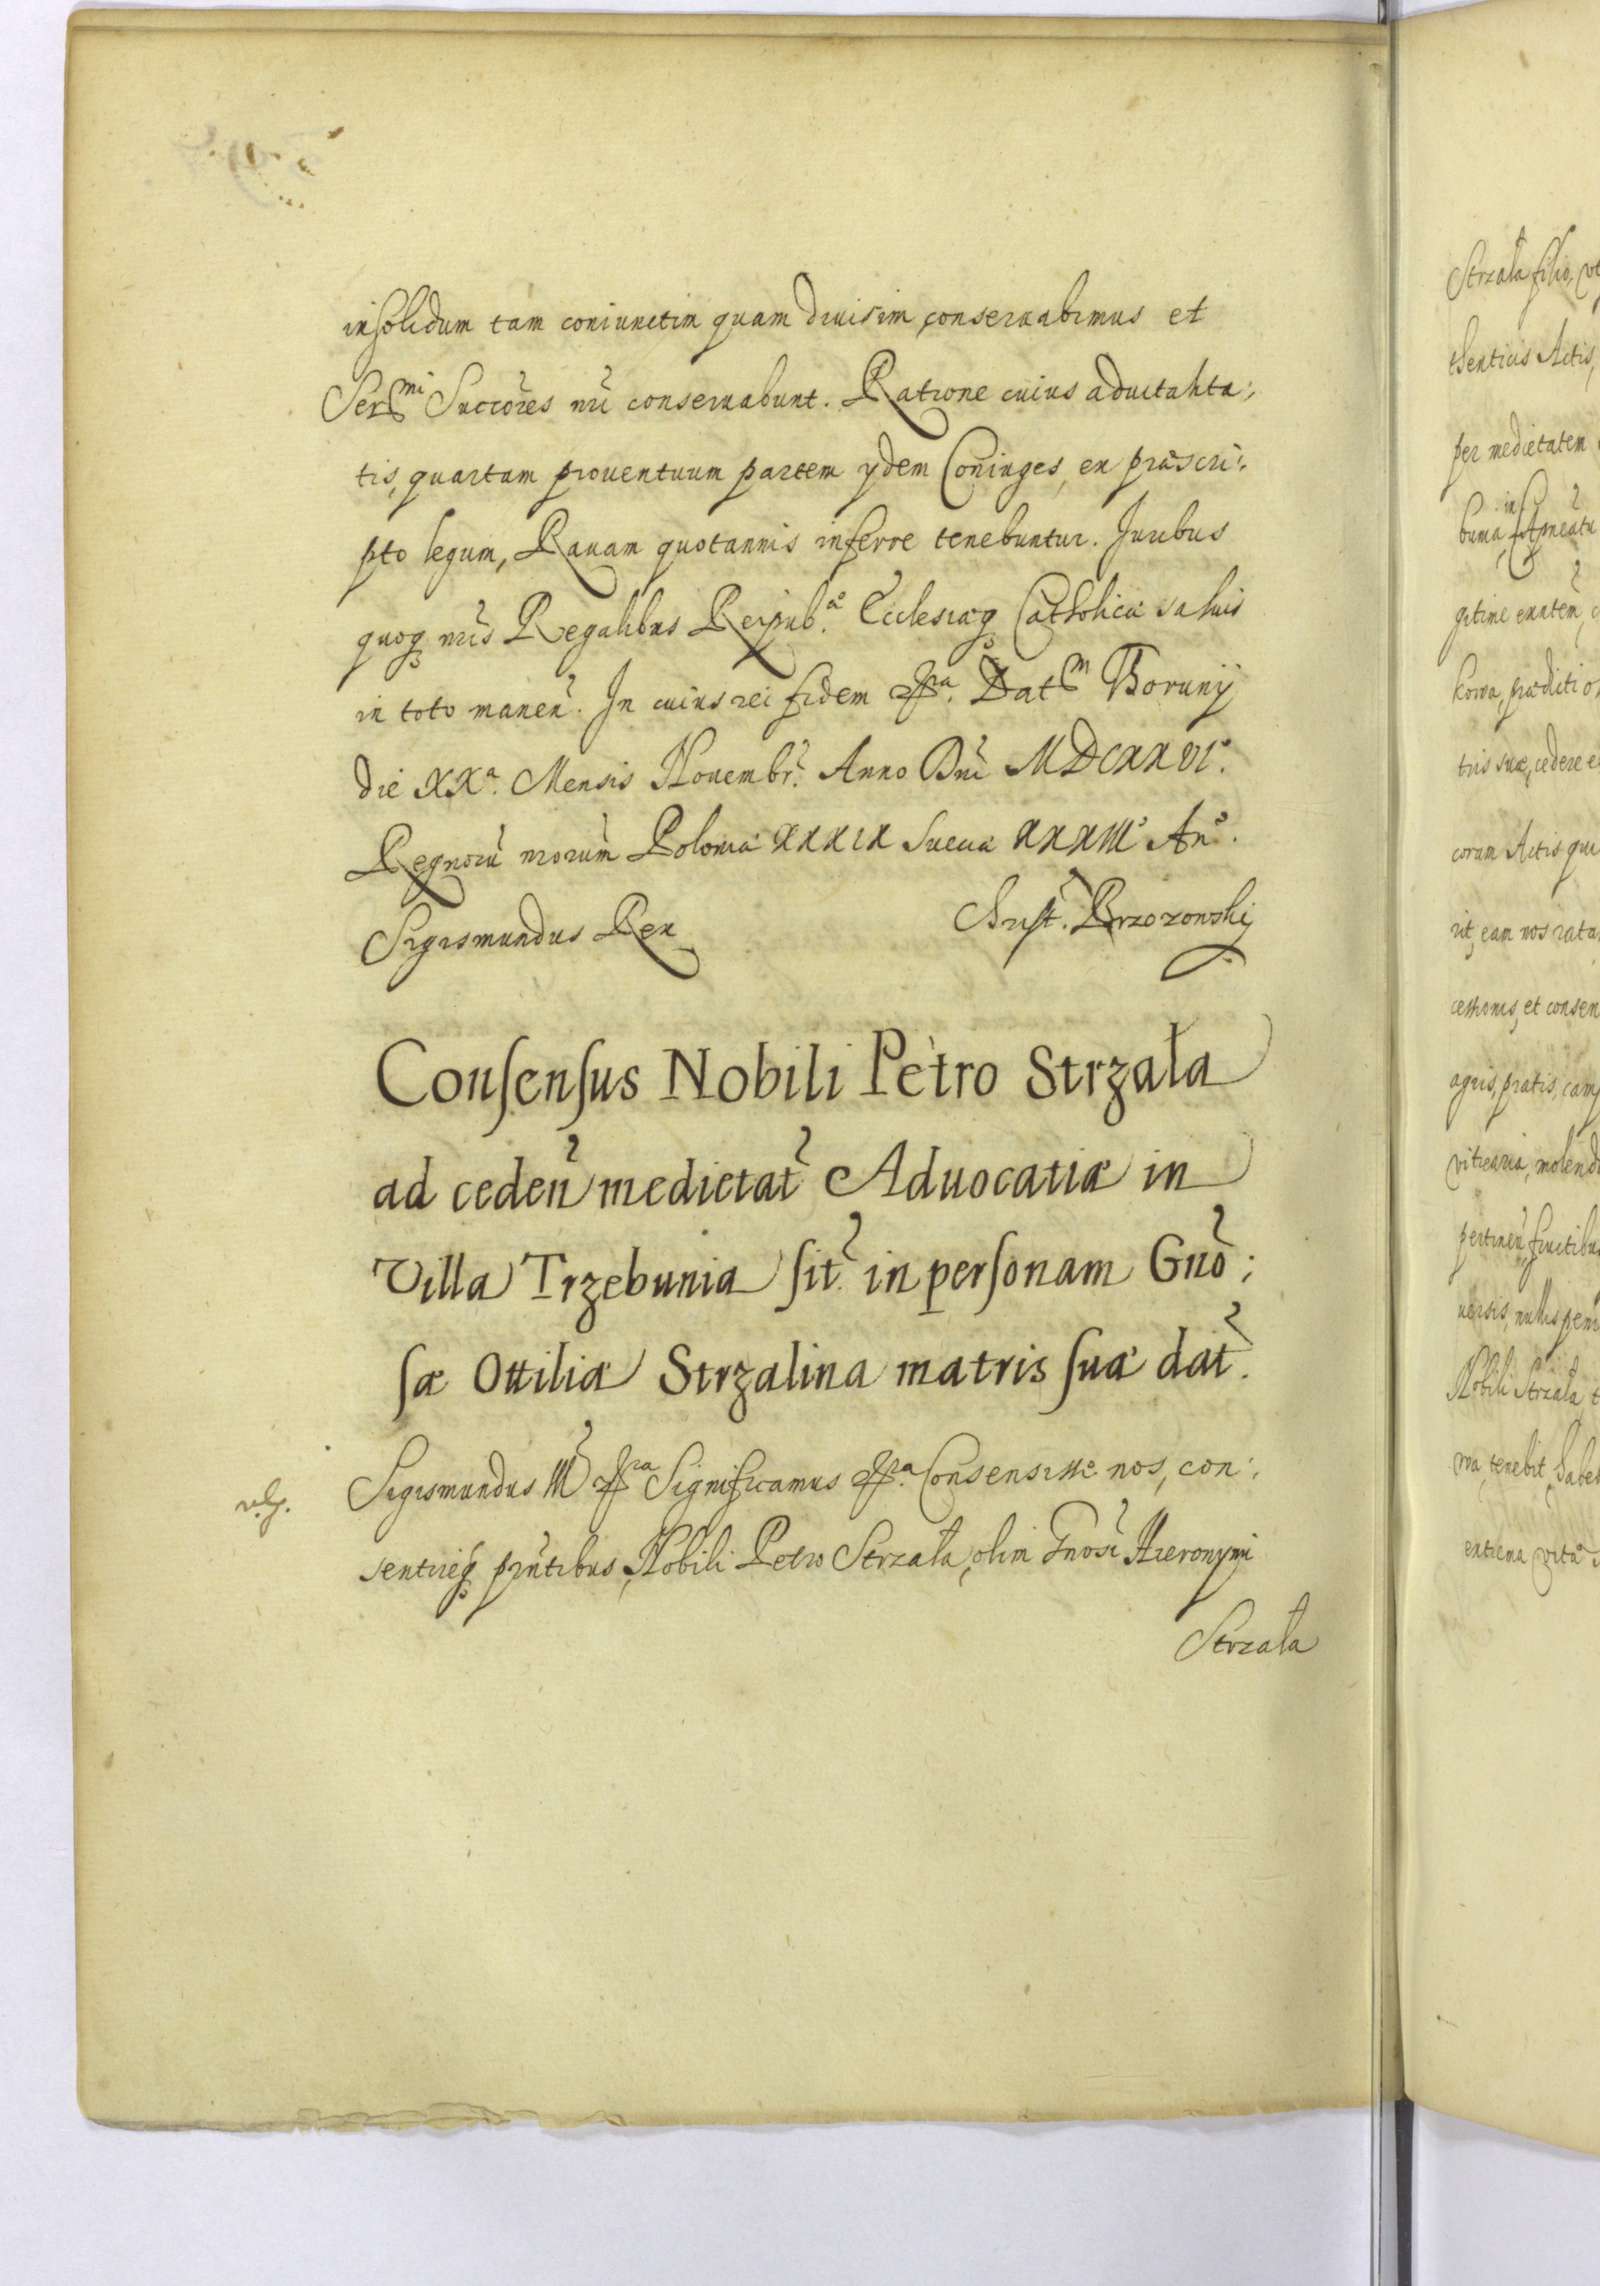 insolidum tam coniunctim quam diuisim conseruabimus et
Sermi Succōres nrī conseruabunt. Ratione cuius aduitalita:
tis, quartam prouentuum partem ijdem Coniuges, ex præscri:
pto legum, Rauam quotannis inferre tenebuntur. Juribus
quoq nrīs Regalibus Reipub.æ Ecclesiæq Catholicæ saluis
in toto manen̄. In cuius rei fidem &ra. Datm Torunij
die XXa. Mensis Nouembr̄. Anno Dnī MDCXXVIo.
Regnorū nrorum̄ Poloniæ XXXIX Sueciæ XXXIIIo Ano.
Sigismundus Rex
Christ. Brzozowskij
Consensus Nobili Petro Strzała
ad ceden̄ medietat̄ Aduocatiæ in
Villa Trzebunia sit̄. in personam Gnō:
sæ Ottiliæ Strzalina matris suæ dat̄.
Sigismundus III &ra Significamus &ra. Consensisse nos, con:
sentireq pn̄tibus, Nobili Petro Strzała, olim Gnōsi Hieronymi
Strzała
Strzała filio, vt
thenticis Actis,
per medietatem
in
buma,
gitime
kowa, præditi
tris suæ, cedere
coram Actis qui
rit, eam nos rata
cessionis, et consen
agris, pratis, camp
vitrearia, molend
pertinen̄, fructibu
uersis, nullis peni
Nobili Strzała
ma, tenebit, habeb
extrema vitæ